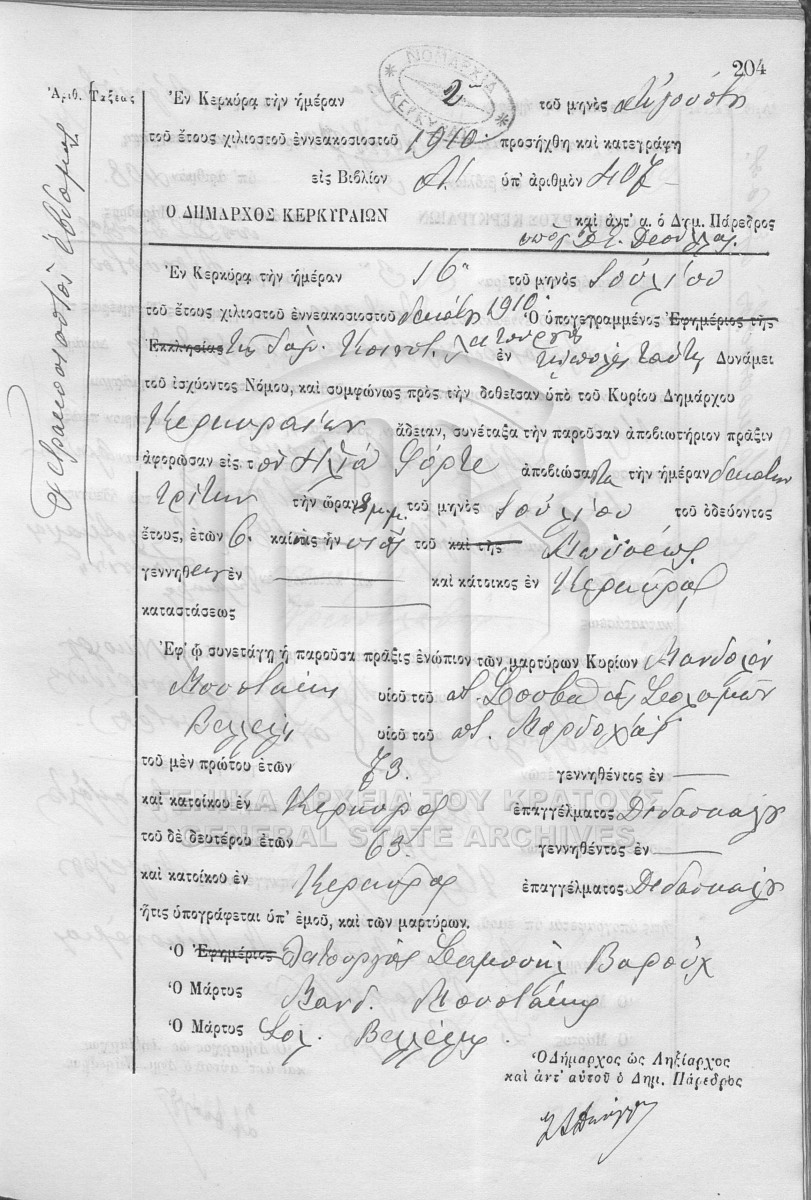 204
ΝΟΜΑΡΧΙΑ
ΚΕΡΚΥΡΑΣ
Ἀριθ. Τάξεως
Τετρακοσιοστὸς ἕβδομος
Ἐν Κερκύρᾳ τὴν ἡμέραν 2 τοῦ μηνὸς Αὐγούστου
τοῦ ἔτους χιλιοστοῦ ἐννεακοσιοστοῦ 1910 προσήχθη καὶ κατεγράφη
εἰς Βιβλίον Α. ὑπ' ἀριθμὸν 407
Ο ΔΗΜΑΡΧΟΣ ΚΕΡΚΥΡΑΙΩΝ καὶ ἀντ' α. ὁ Δημ. Πάρεδρος
Ἐν Κερκύρᾳ τὴν ἡμέραν 16 τοῦ μηνὸς Ἰουλίου
τοῦ ἔτους χιλιοστοῦ ἐννεακοσιοστοῦ δεκάτου 1910 Ὁ ὑπογεγραμμένος Ἐφημέριος τῆς
Ἐκκλησίας τῆς Κοινοτ. λειτουργὸς ἐν τῇ πόλει ταύτῃ Δυνάμει
τοῦ ἰσχύοντος Νόμου, καὶ συμφώνως πρὸς τὴν δοθεῖσαν ὑπὸ τοῦ Κυρίου Δημάρχου
Κερκυραίων ἄδειαν, συνέταξα τὴν παροῦσαν ἀποβιωτήριον πρᾶξιν
ἀφορῶσαν εἰς τὸν Ἠλία Φόρτε ἀποβιώσαντα τὴν ἡμέραν δεκάτην
τρίτην τὴν ὥραν 8 μ.μ. τοῦ μηνὸς Ἰουλίου τοῦ ὁδεύοντος
ἔτους, ἐτῶν 6. καὶ ὅστις ἦν υἱὸς τοῦ καὶ τῆς Μωϋσέως
γεννηθεὶς ἐν — καὶ κάτοικος ἐν Κερκύρᾳ
καταστάσεως —
Ἐφ' ᾧ συνετάγη ἡ παροῦσα πρᾶξις ἐνώπιον τῶν μαρτύρων Κυρίων Μανδολὴν
Μουστάκης υἱοῦ τοῦ ποτ. Σαββὰ καὶ Σολομὼν
Βελλέλης υἱοῦ τοῦ ποτ. Μαρδοχάη
τοῦ μὲν πρώτου ἐτῶν 73. γεννηθέντος ἐν —
καὶ κατοίκου ἐν Κερκύρᾳ ἐπαγγέλματος Διδασκάλου
τοῦ δὲ δευτέρου ἐτῶν 63. γεννηθέντος ἐν —
καὶ κατοίκου ἐν Κερκύρᾳ ἐπαγγέλματος Διδασκάλου
ἥτις ὑπογράφεται ὑπ' ἐμοῦ, καὶ τῶν μαρτύρων.
Ὁ Ἐφημέριος Λειτουργὸς Σαμουὴλ Βαροὺχ
Ὁ Μάρτυς Μανδ. Μουστάκης
Ὁ Μάρτυς Σολ. Βελλέλης
Ὁ Δήμαρχος ὡς Ληξίαρχος
καὶ ἀντ' αὐτοῦ ὁ Δημ. Πάρεδρος
ΓΕΝΙΚΑ ΑΡΧΕΙΑ ΤΟΥ ΚΡΑΤΟΥΣ
GENERAL STATE ARCHIVES